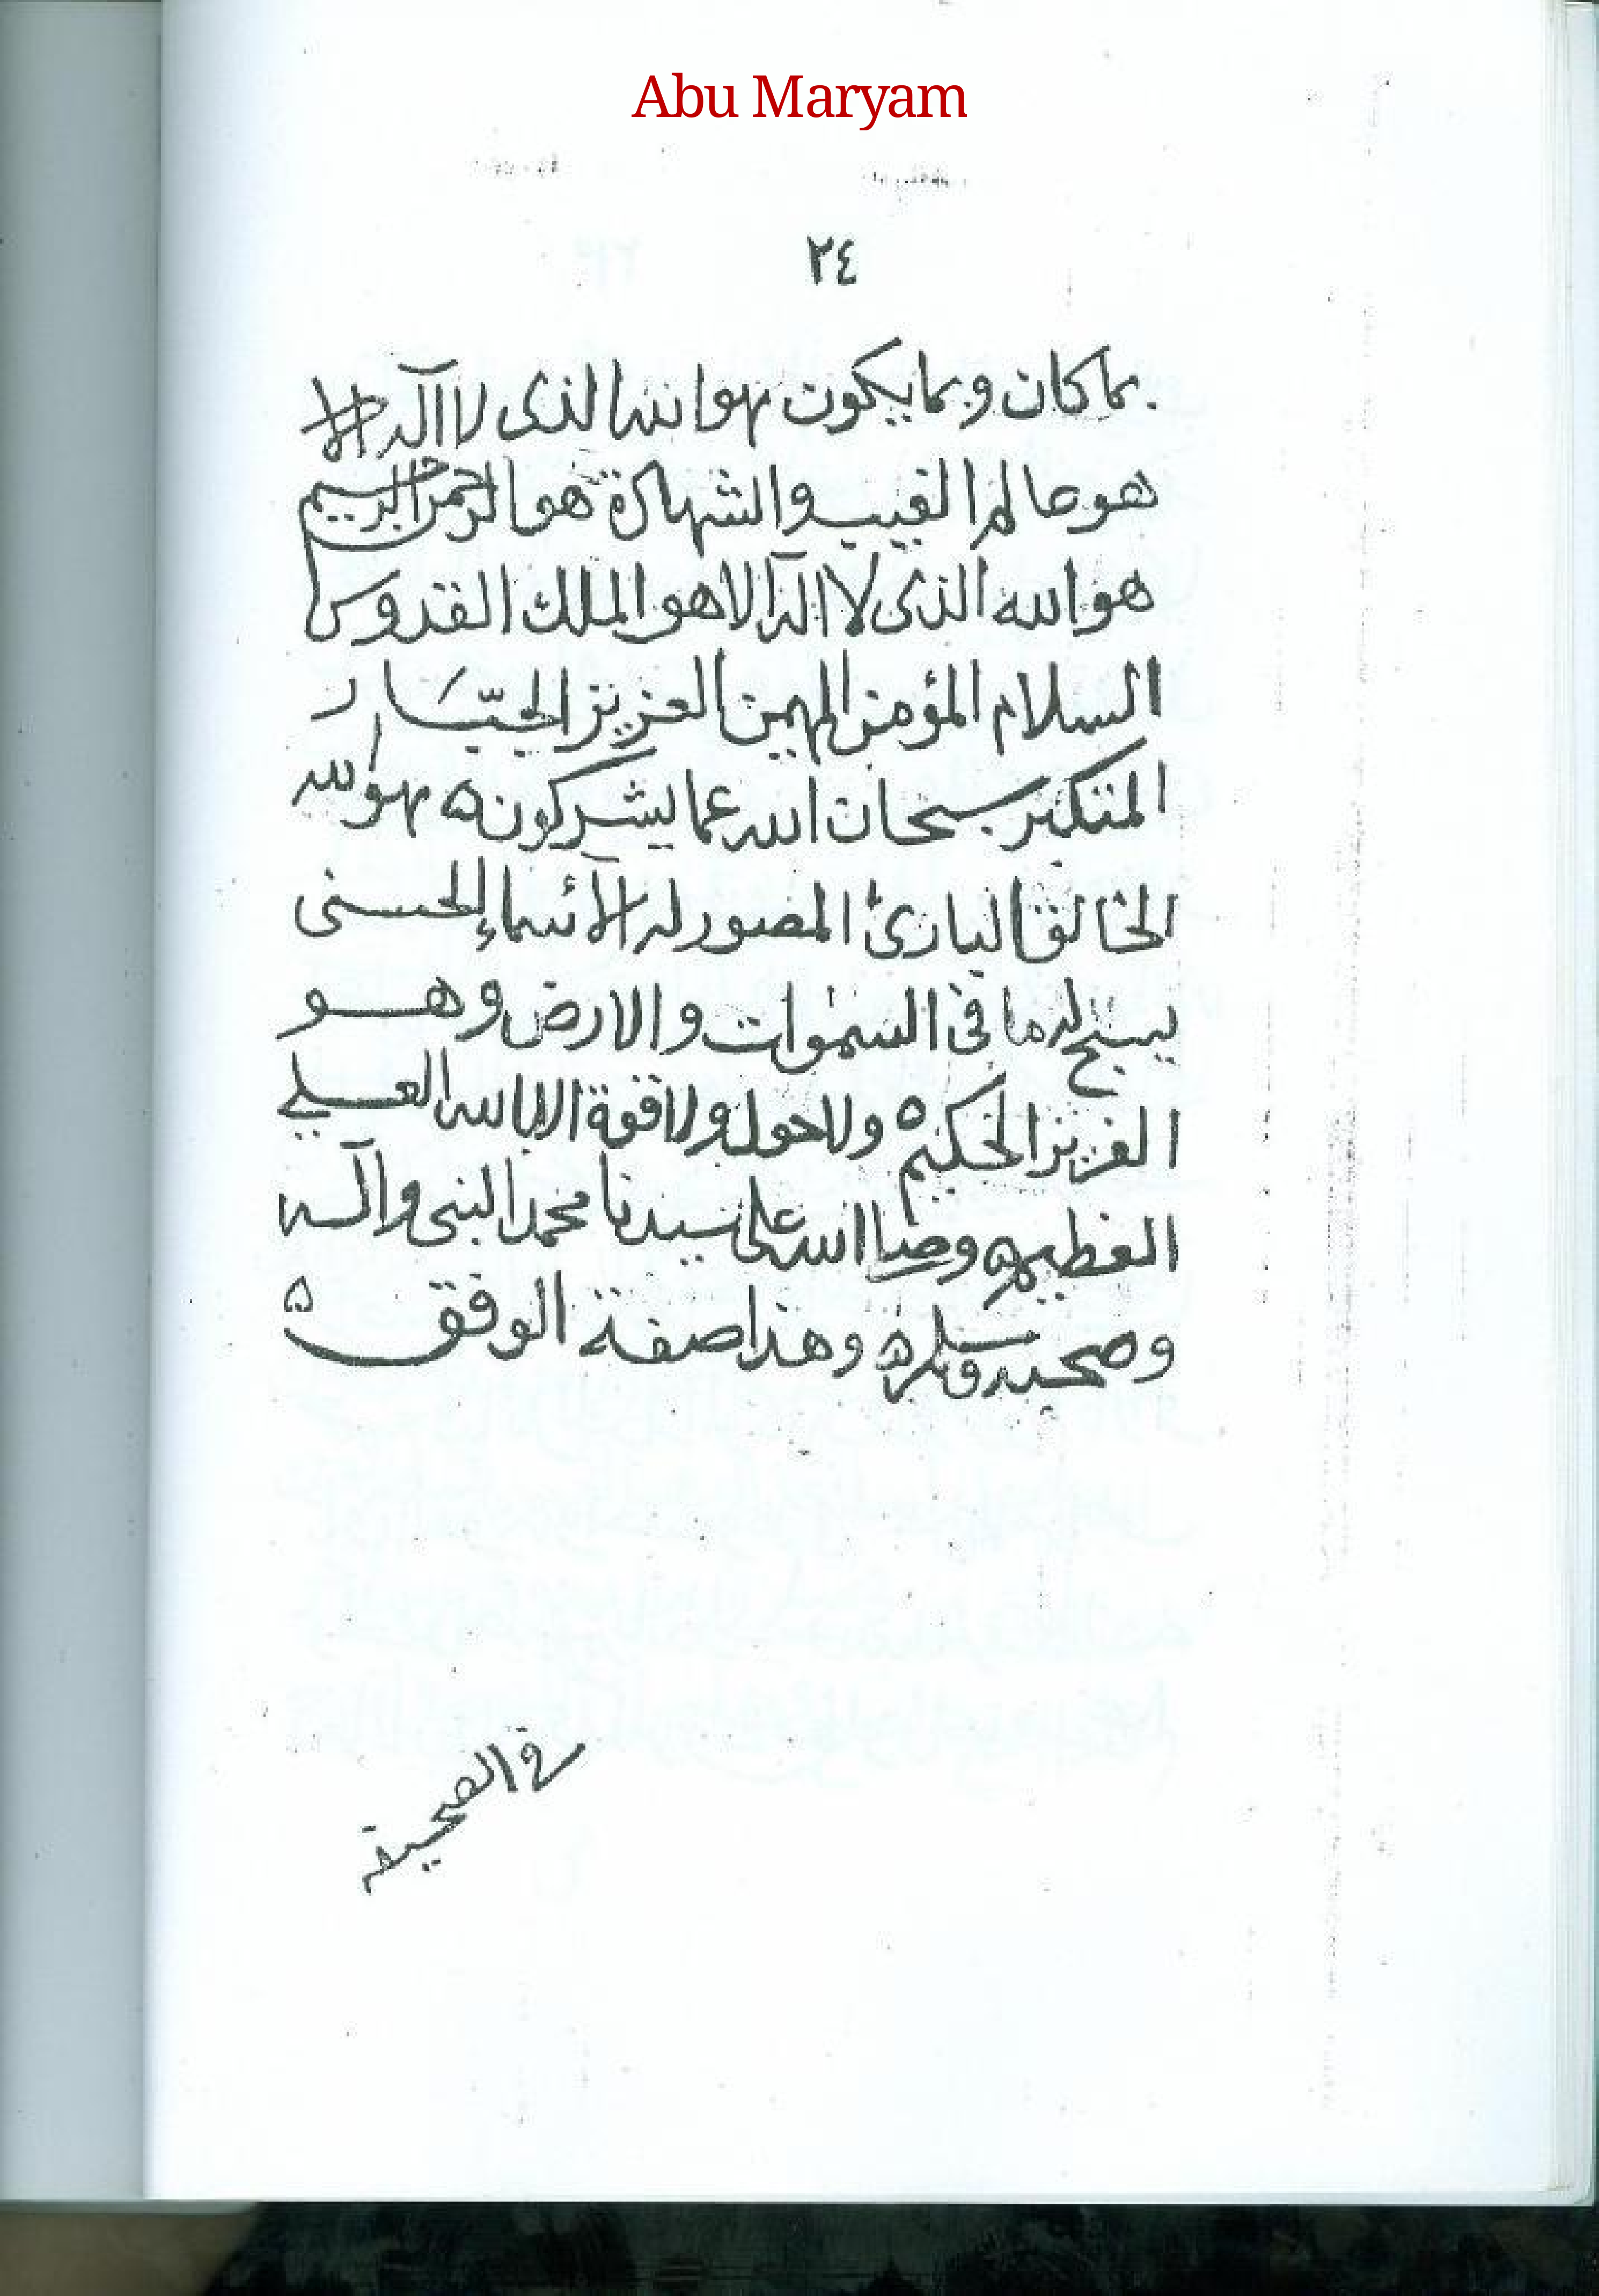 Abu Maryam
٢٤
بما كان وبما يكون هو الله الذى لا اله الا
هو عالم الغيب والشهادة هو الرحمن الرحيم
هو الله الذى لا اله الا هو الملك القدوس
السلام المؤمن المهيمن العزيز الجبّـَـار
المتكبر سبحان الله عما يشركون ه هو الله
الخالق البارئ المصور له الأسماء الحسنى
يسبح له ما فى السمٰوات والارض وهــو
العزيز الحكيم ه ولا حول ولا قوة الا بالله العــلي
العظيم ه وصلى الله على سيدنا محمد النبى وآلــه
وصحبه وسلم ه وهذا صفة الوفق ه
فى الصحيفة